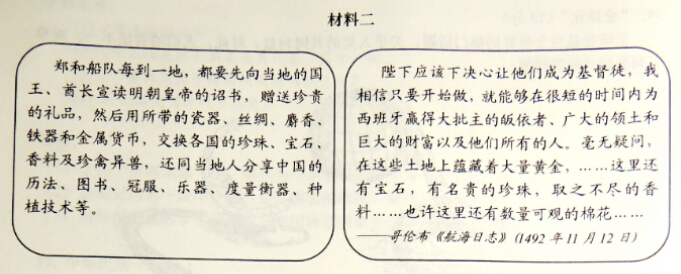 材料二
郑和船队每到一地，都要先向当地的国
王、酋长宣读明朝皇帝的诏书，赠送珍贵
的礼品，然后用所带的瓷器、丝绸、麝香、
铁器和金属货币，交换各国的珍珠、宝石、
香料及珍禽异兽，还同当地人分享中国的
历法、图书、冠服、乐器、度量衡器、种
植技术等。
陛下应该下决心让他们成为基督徒，我
相信只要开始做，就能够在很短的时间内为
西班牙赢得大批主的皈依者、广大的领土和
巨大的财富以及他们所有的人。毫无疑问，
在这些土地上蕴藏着大量黄金，……这里还
有宝石，有名贵的珍珠，取之不尽的香
料……也许这里还有数量可观的棉花……
——哥伦布《航海日志》(1492年11月12日)